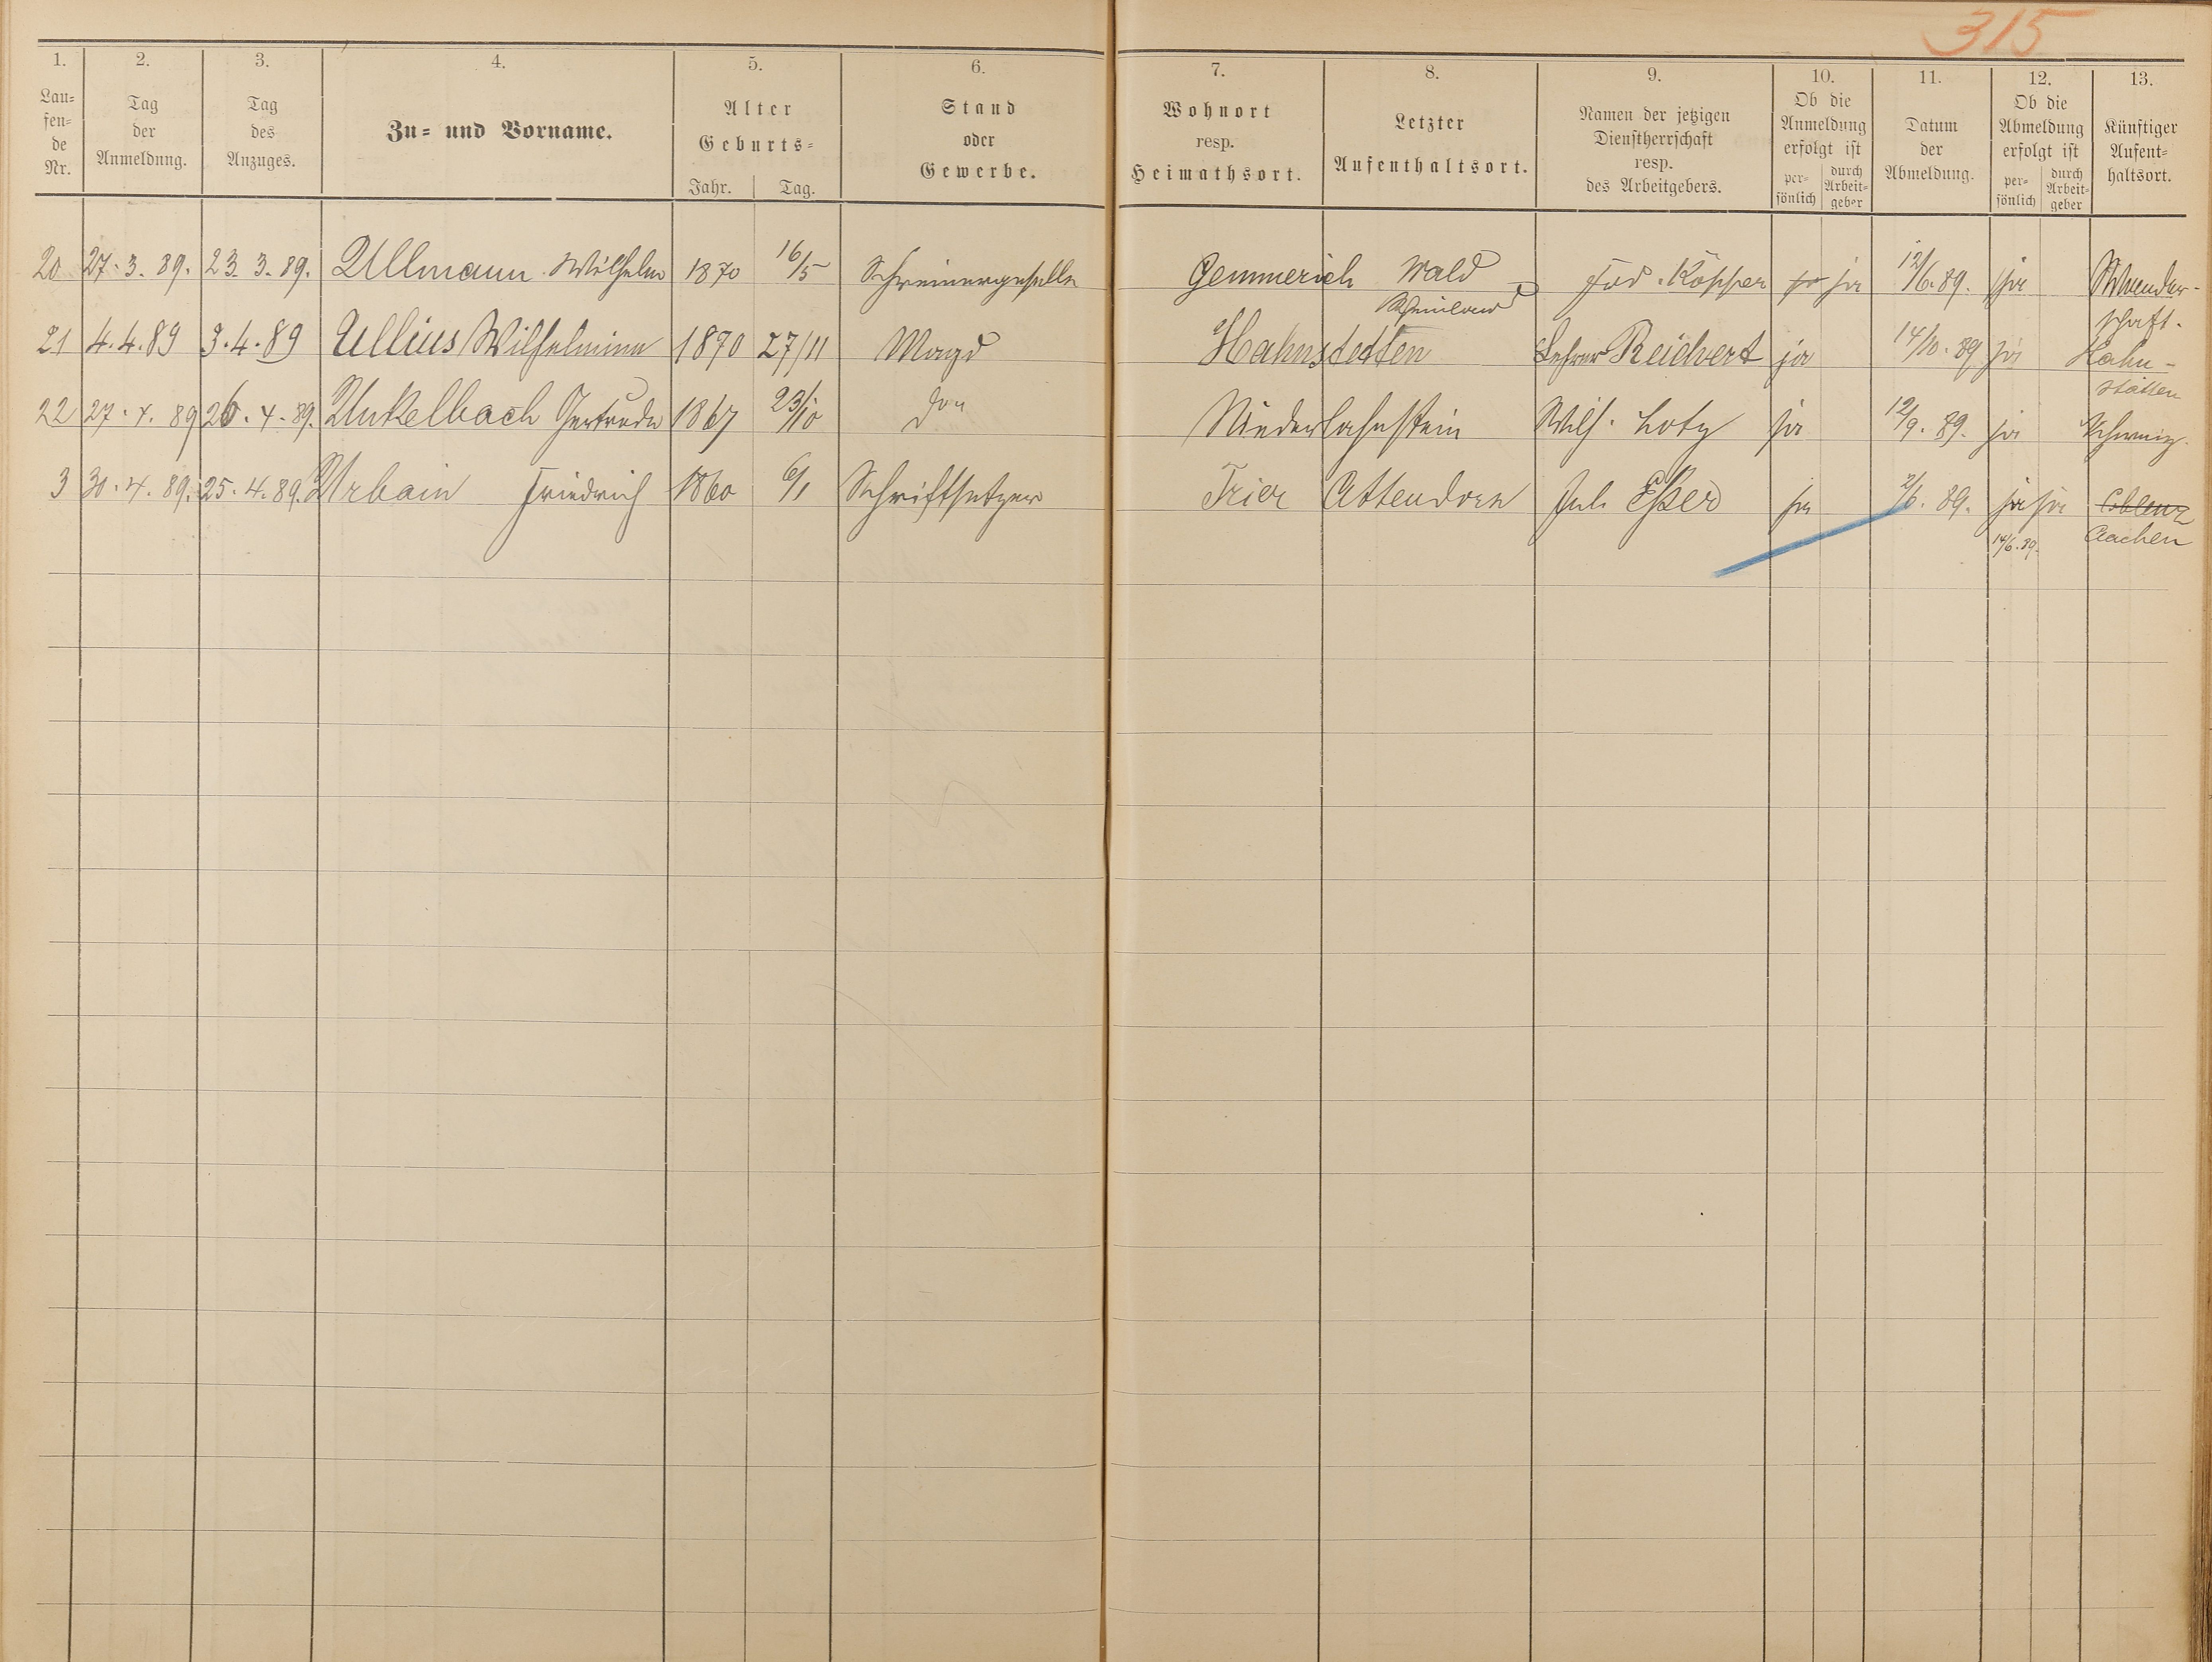 315
1. 2. 3. 4. 5. 6. 7. 8. 9. 10. 11. 12. 13.
Lau=
fen=
de
Nr.
Tag
der
Anmeldung.
Tag
des
Anzuges.
Zu= und Vorname.
Alter
Geburts=
Jahr. Tag.
Stand
oder
Gewerbe.
Wohnort
resp.
Heimathsort.
Letzter
Aufenthaltsort.
Namen der jetzigen
Dienstherrschaft
resp.
des Arbeitgebers.
Ob die
Anmeldung
erfolgt ist
per=
sönlich
durch
Arbeit=
geber
Datum
der
Abmeldung.
Ob die
Abmeldung
erfolgt ist
per=
sönlich
durch
Arbeit=
geber
Künftiger
Aufent=
haltsort.
20 27. 3. 89. 23. 3. 89. Ullmann Wilhelm 1870 16/5 Schreinergeselle Gemmerich Wald Rheinland Köpper ja 12/6. 89. ja Wander-
schaft.
21 4. 4. 89 3. 4. 89 Ullius Wilhelmine 1870 27/11 Magd Hahnstedten Lehrer Reichert ja 14/10. 89 ja Hahn-
stätten
22 27. 4. 89 26. 4. 89. Unkelbach Gertrude 1867 23/10 do Niederlahnstein Wilh. Lotz ja 12/9. 89. ja Schweiz.
3 30. 4. 89. 25. 4. 89. Urbain Friedrich 1860 6/1 Schriftsetzer Trier Attendorn Jul. Eßer ja 2/6. 89. ja ja Coblenz
14/6. 89. Aachen